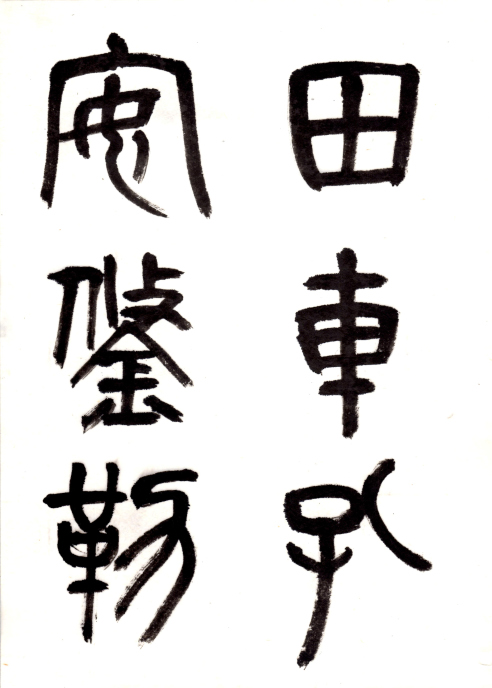 田車孔
安鋚勒